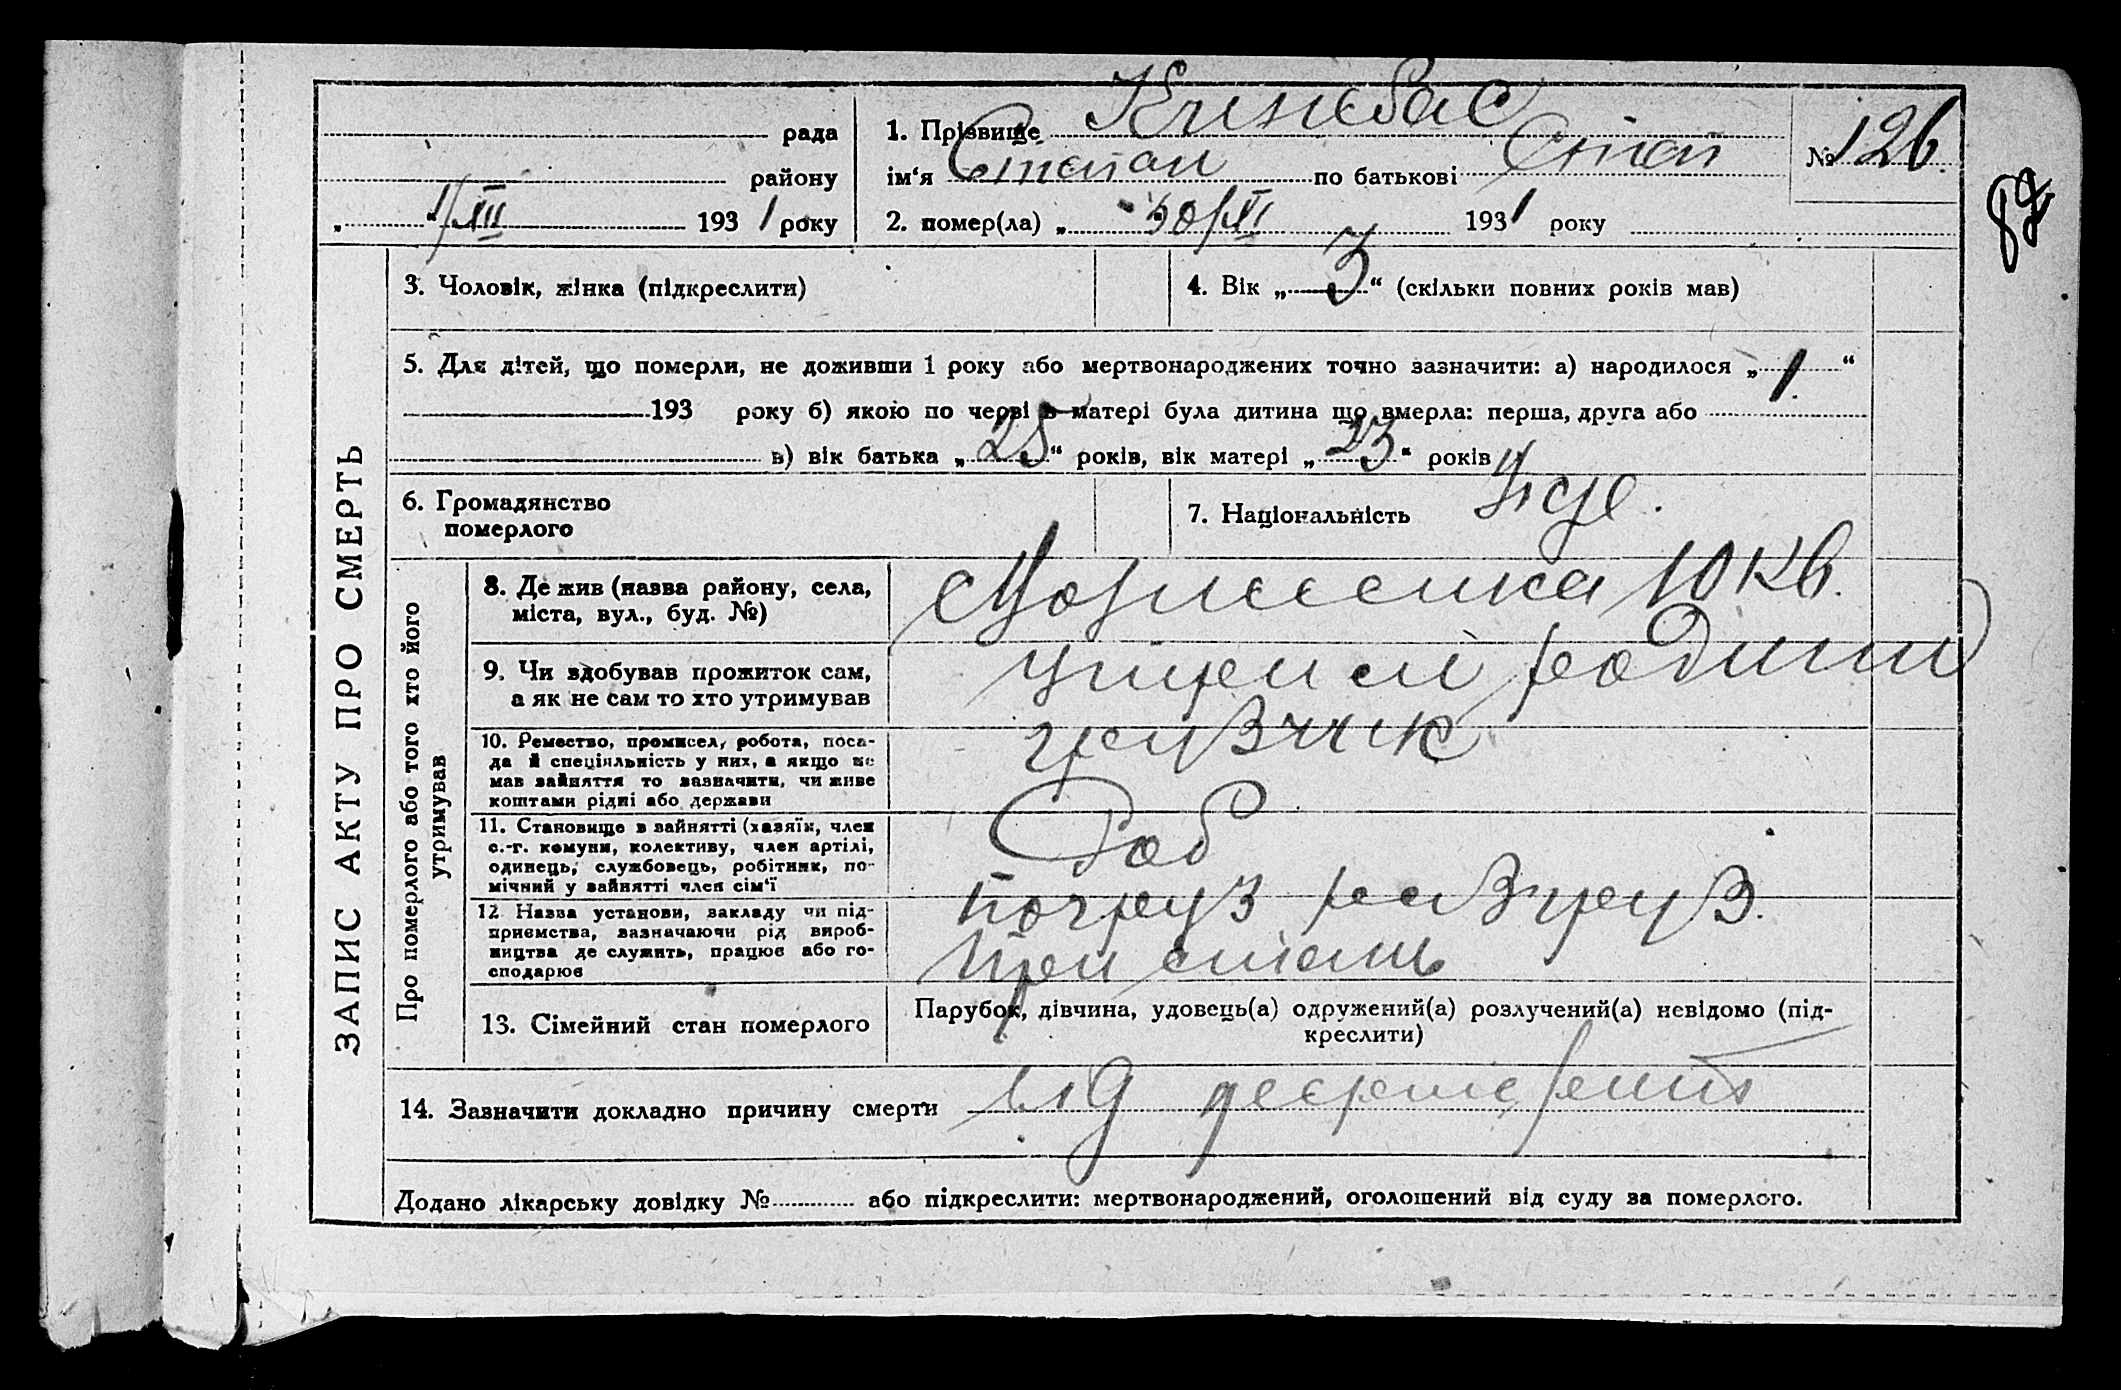 рада
району
„ 1/XII 1931 року
1. Прізвище
ім‘я Степан по батькові Степ
№ 126.
2. помер(ла) „ 30/XI 1931 року
87
ЗАПИС АКТУ ПРО СМЕРТЬ
3. Чоловік, жінка (підкреслити)
4. Вік „ 3 “ (скільки повних років мав)
5. Для дітей, що померли, не доживши 1 року або мертвонароджених точно зазначити: а) народилося „ 1. “
193 року б) якою по черві в матері була дитина що вмерла: перша, друга або
в) вік батька „ 25 “ років, вік матері „ 23 “ років
6. Громадянство
померлого
7. Національність
Про померлого або того хто його
утримував
8. Де жив (назва району, села,
міста, вул., буд. №)
10 кв.
9. Чи здобував прожиток сам,
а як не сам то хто утримував
родини
10. Ремество, промисел, робота, поса-
да й спеціяльність у них, а якщо не
мав зайняття то зазначити, чи живе
коштами рідні або держави
грузчик
11. Становище в зайнятті (хазяїн, член
с.-г. комуни, колективу, член артілі,
одинець, службовець, робітник, по-
мічний у зайнятті член сім‘ї
Роб
12 Назва установи, закладу чи під-
приємства, зазначаючи рід вироб-
ництва де служить, працює або го-
сподарює
погруз разгруз.
пристань
13. Сімейний стан померлого
Парубок, дівчина, удовець(а) одружений(а) розлучений(а) невідомо (під-
креслити)
14. Зазначити докладно причину смерти від
Додано лікарську довідку № або підкреслити: мертвонароджений, оголошений від суду за померлого.